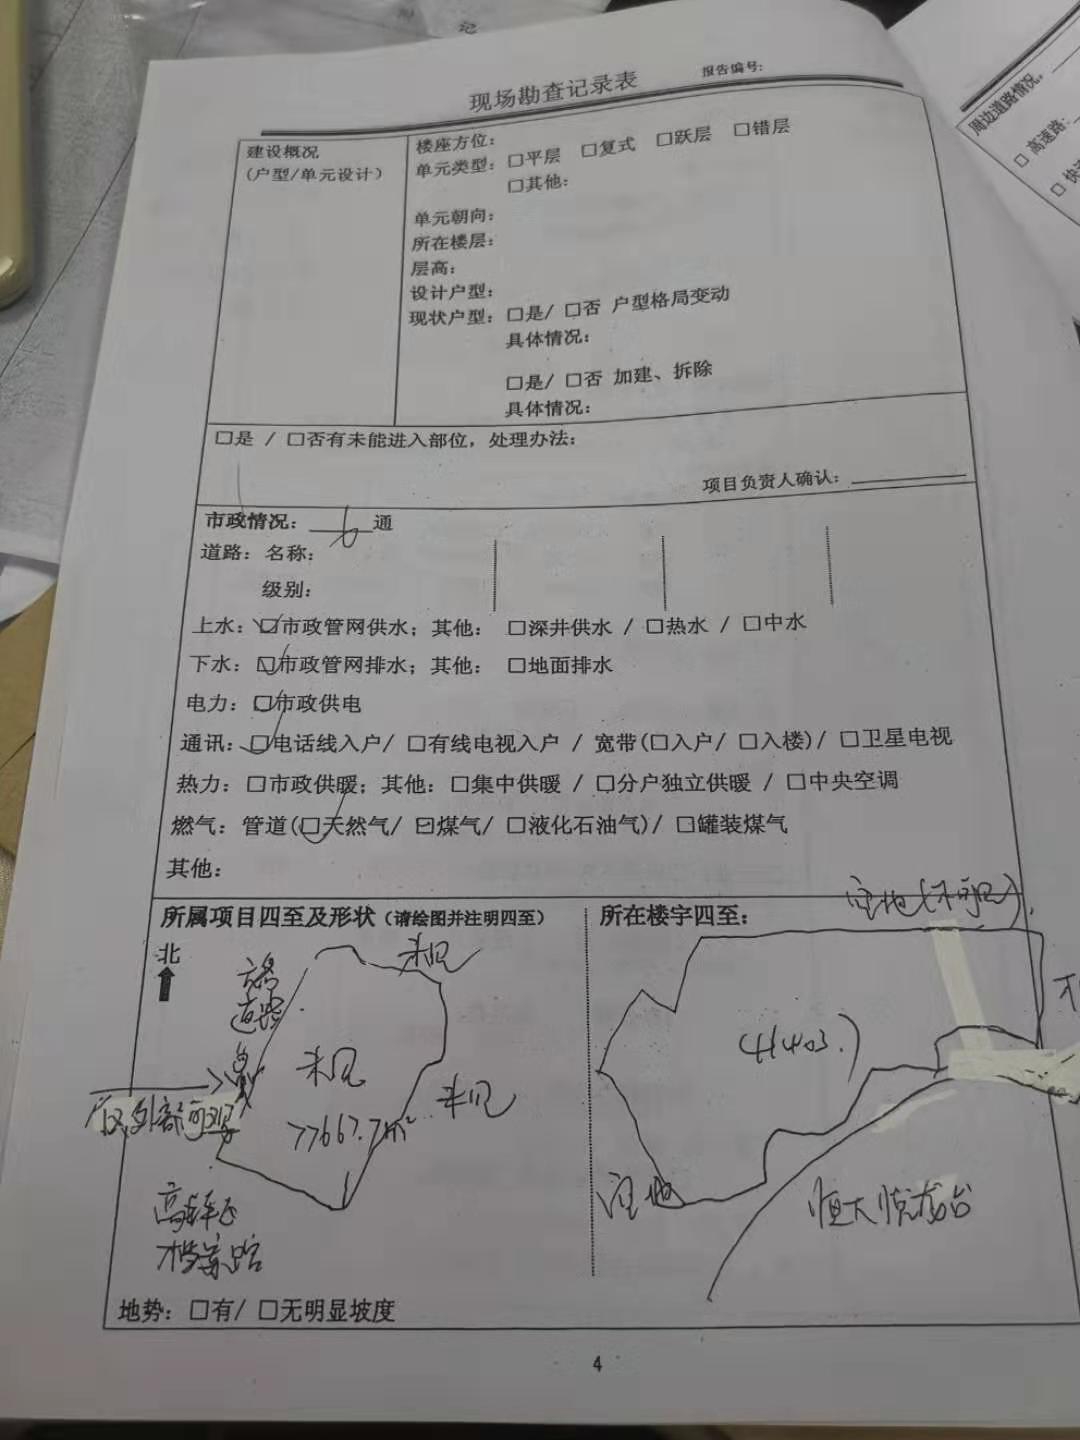 记
现场勘查记录表
报告编号:
周边道路情况,
□ 高速路:
建设概况
(户型/单元设计)
楼座方位:
单元类型: □平层 □复式 □跃层 □错层
□其他:
单元朝向:
所在楼层:
层高:
设计户型:
现状户型: □是/ □否 户型格局变动
具体情况:
□是/ □否 加建、拆除
具体情况:
□是 / □否有未能进入部位, 处理办法:
项目负责人确认:
市政情况: 七 通
道路: 名称:
级别:
上水: ☑市政管网供水; 其他: □深井供水 / □热水 / □中水
下水: ☑市政管网排水; 其他: □地面排水
电力: ☑市政供电
通讯: ☑电话线入户/ □有线电视入户 / 宽带(□入户/ □入楼)/ □卫星电视
热力: □市政供暖; 其他: □集中供暖 / □分户独立供暖 / □中央空调
燃气: 管道(☑天然气/ □煤气/ □液化石油气)/ □罐装煤气
其他:
所属项目四至及形状 (请绘图并注明四至)
所在楼宇四至:
空地(不可见)
北
未见
道路
未见
未见
仅外部可观
77667.7m²
(41403.)
空地
恒大悦龙台
地势: □有/ □无明显坡度
4